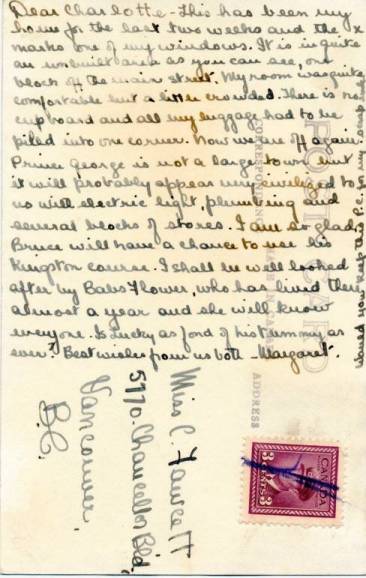 Dear Charlotte - This has been my
home for the last two weeks and the x
marks one of my windows. It is in quite
an unbuilt area as you can see, one
block off the main street. My room was quite
comfortable but a little crowded. There is no
cupboard and all my luggage had to be
piled into one corner. Now we are off again.
Prince George is not a large town but
it will probably appear very civilized to
us with electric light, plumbing and
several blocks of stores. I am so glad
Bruce will have a chance to use his
Kingston course. I shall be well looked
after by Babs Flower, who has lived there
almost a year and she will know
everyone. Is Lucky as fond of his tummy as
ever? Best wishes from us both - Margaret.
Would you keep this P.C. for my scrapbook
POST CARD
CORRESPONDENCE
ADDRESS
Miss C. Fawcett
5770 Chancellor Bld.
Vancouver
B.C.
CANADA
3 CENTS 3